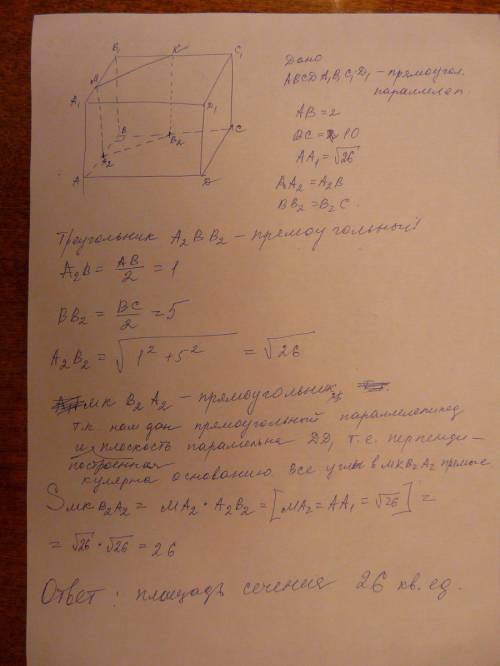 B₁ K C₁
M
A₁ D₁
B B₂ C
A₂
A D
Дано
ABCDA₁B₁C₁D₁ – прямоугол.
параллелеп
AB = 2
BC = 10
AA₁ = √26
AA₂ = A₂B
BB₂ = B₂C.
Треугольник A₂BB₂ – прямоугольный!
A₂B = AB/2 = 1
BB₂ = BC/2 = 5
A₂B₂ = √(1² + 5²) = √26
MKB₂A₂ – прямоугольник,
т.к. нам дан прямоугольный параллелепипед
и построенная плоскость параллельна DD₁ т.е. перпенди–
кулярна основанию. Все углы в MKB₂A₂ прямые
S MKB₂A₂ = MA₂ · A₂B₂ = [MA₂ = AA₁ = √26] =
= √26 · √26 = 26
Ответ: площадь сечения 26 кв. ед.